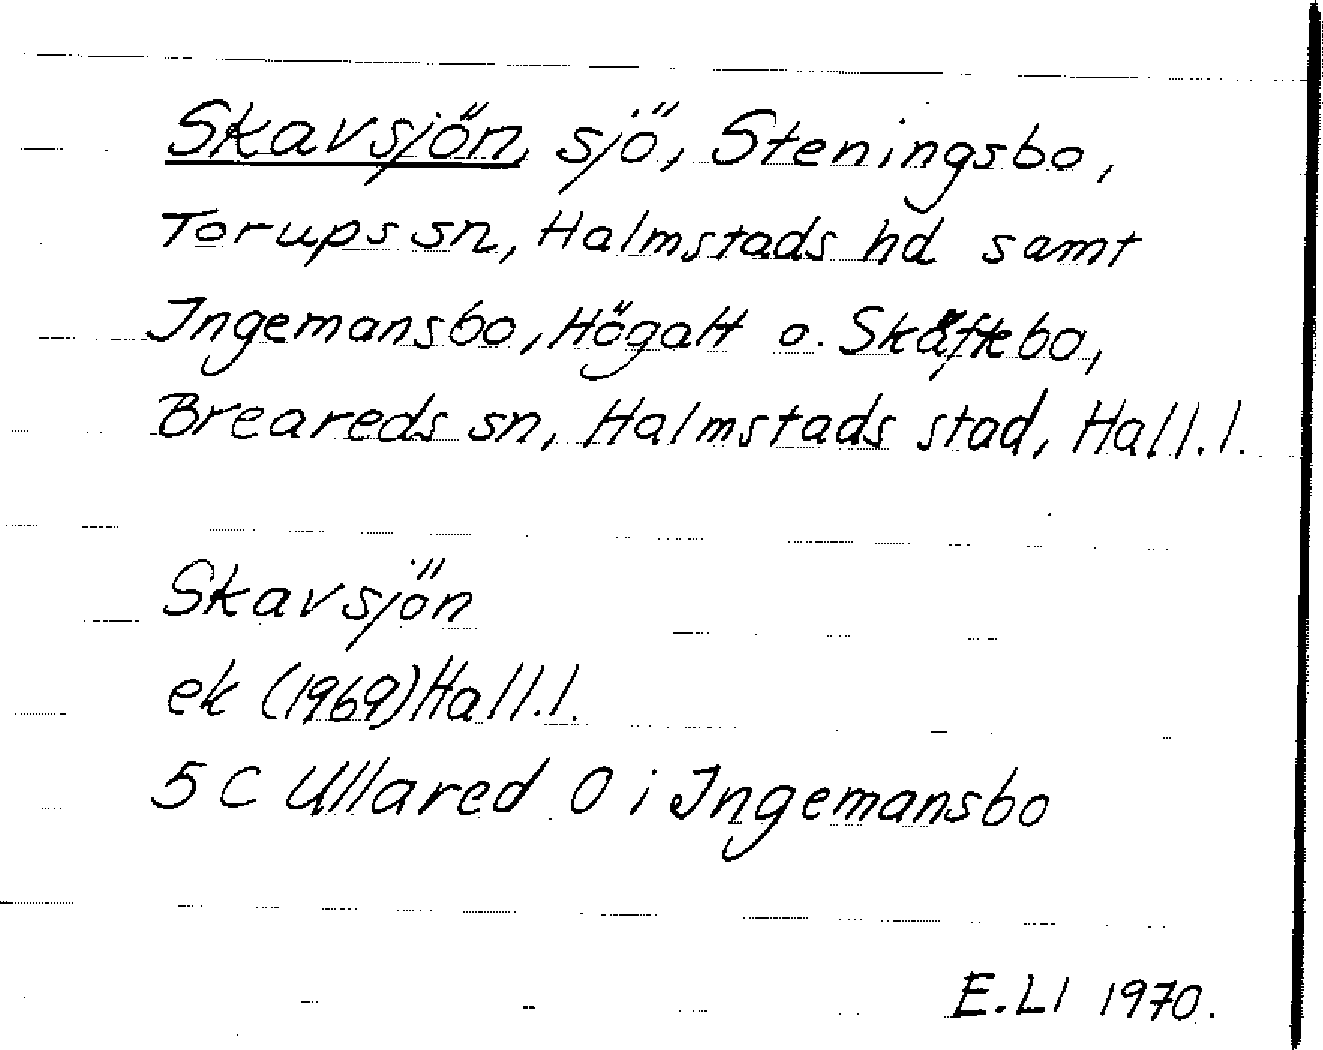 Skavsjön, sjö, Steningsbo,
Torups sn, Halmstads hd samt
Ingemansbo, Högalt o. Skäftebo,
Breareds sn, Halmstads stad, Hall.l.
Skavsjön
ek (1969) Hall.l.
5 C Ullared O i Ingemansbo
E.Ll 1970.